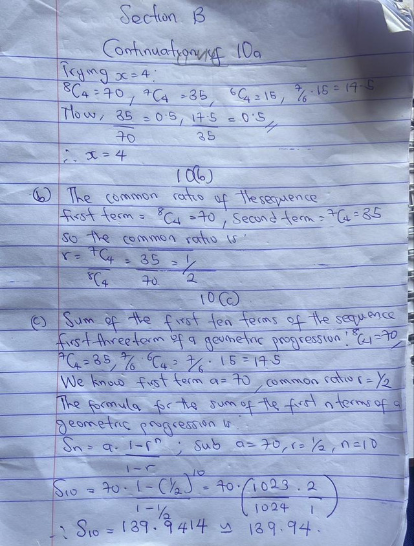 Section B
Continuation of 10a
Trying x = 4:
⁸C₄ = 70, ⁷C₄ = 35, ⁶C₄ = 15, 7/6 · 15 = 17.5
Now, 35/70 = 0.5, 17.5/35 = 0.5 //
∴ x = 4
10(b)
(b) The common ratio of the sequence
first term = ⁸C₄ = 70, Second term = ⁷C₄ = 35
so the common ratio is:
r = ⁷C₄/⁸C₄ = 35/70 = 1/2
10(c)
(c) Sum of the first ten terms of the sequence
first three term of a geometric progression: ⁸C₄ = 70,
⁷C₄ = 35, 7/6 ⁶C₄ = 7/6 · 15 = 17.5
We know first term a = 70, common ratio r = 1/2
The formula for the sum of the first n terms of a
geometric progression is:
Sn = a · 1-rⁿ/1-r ; sub a = 70, r = 1/2, n = 10
S₁₀ = 70 · 1-(1/2)¹⁰/1-1/2 = 70 · (1023/1024 · 2/1)
∴ S₁₀ = 139.9414 ≃ 139.94.